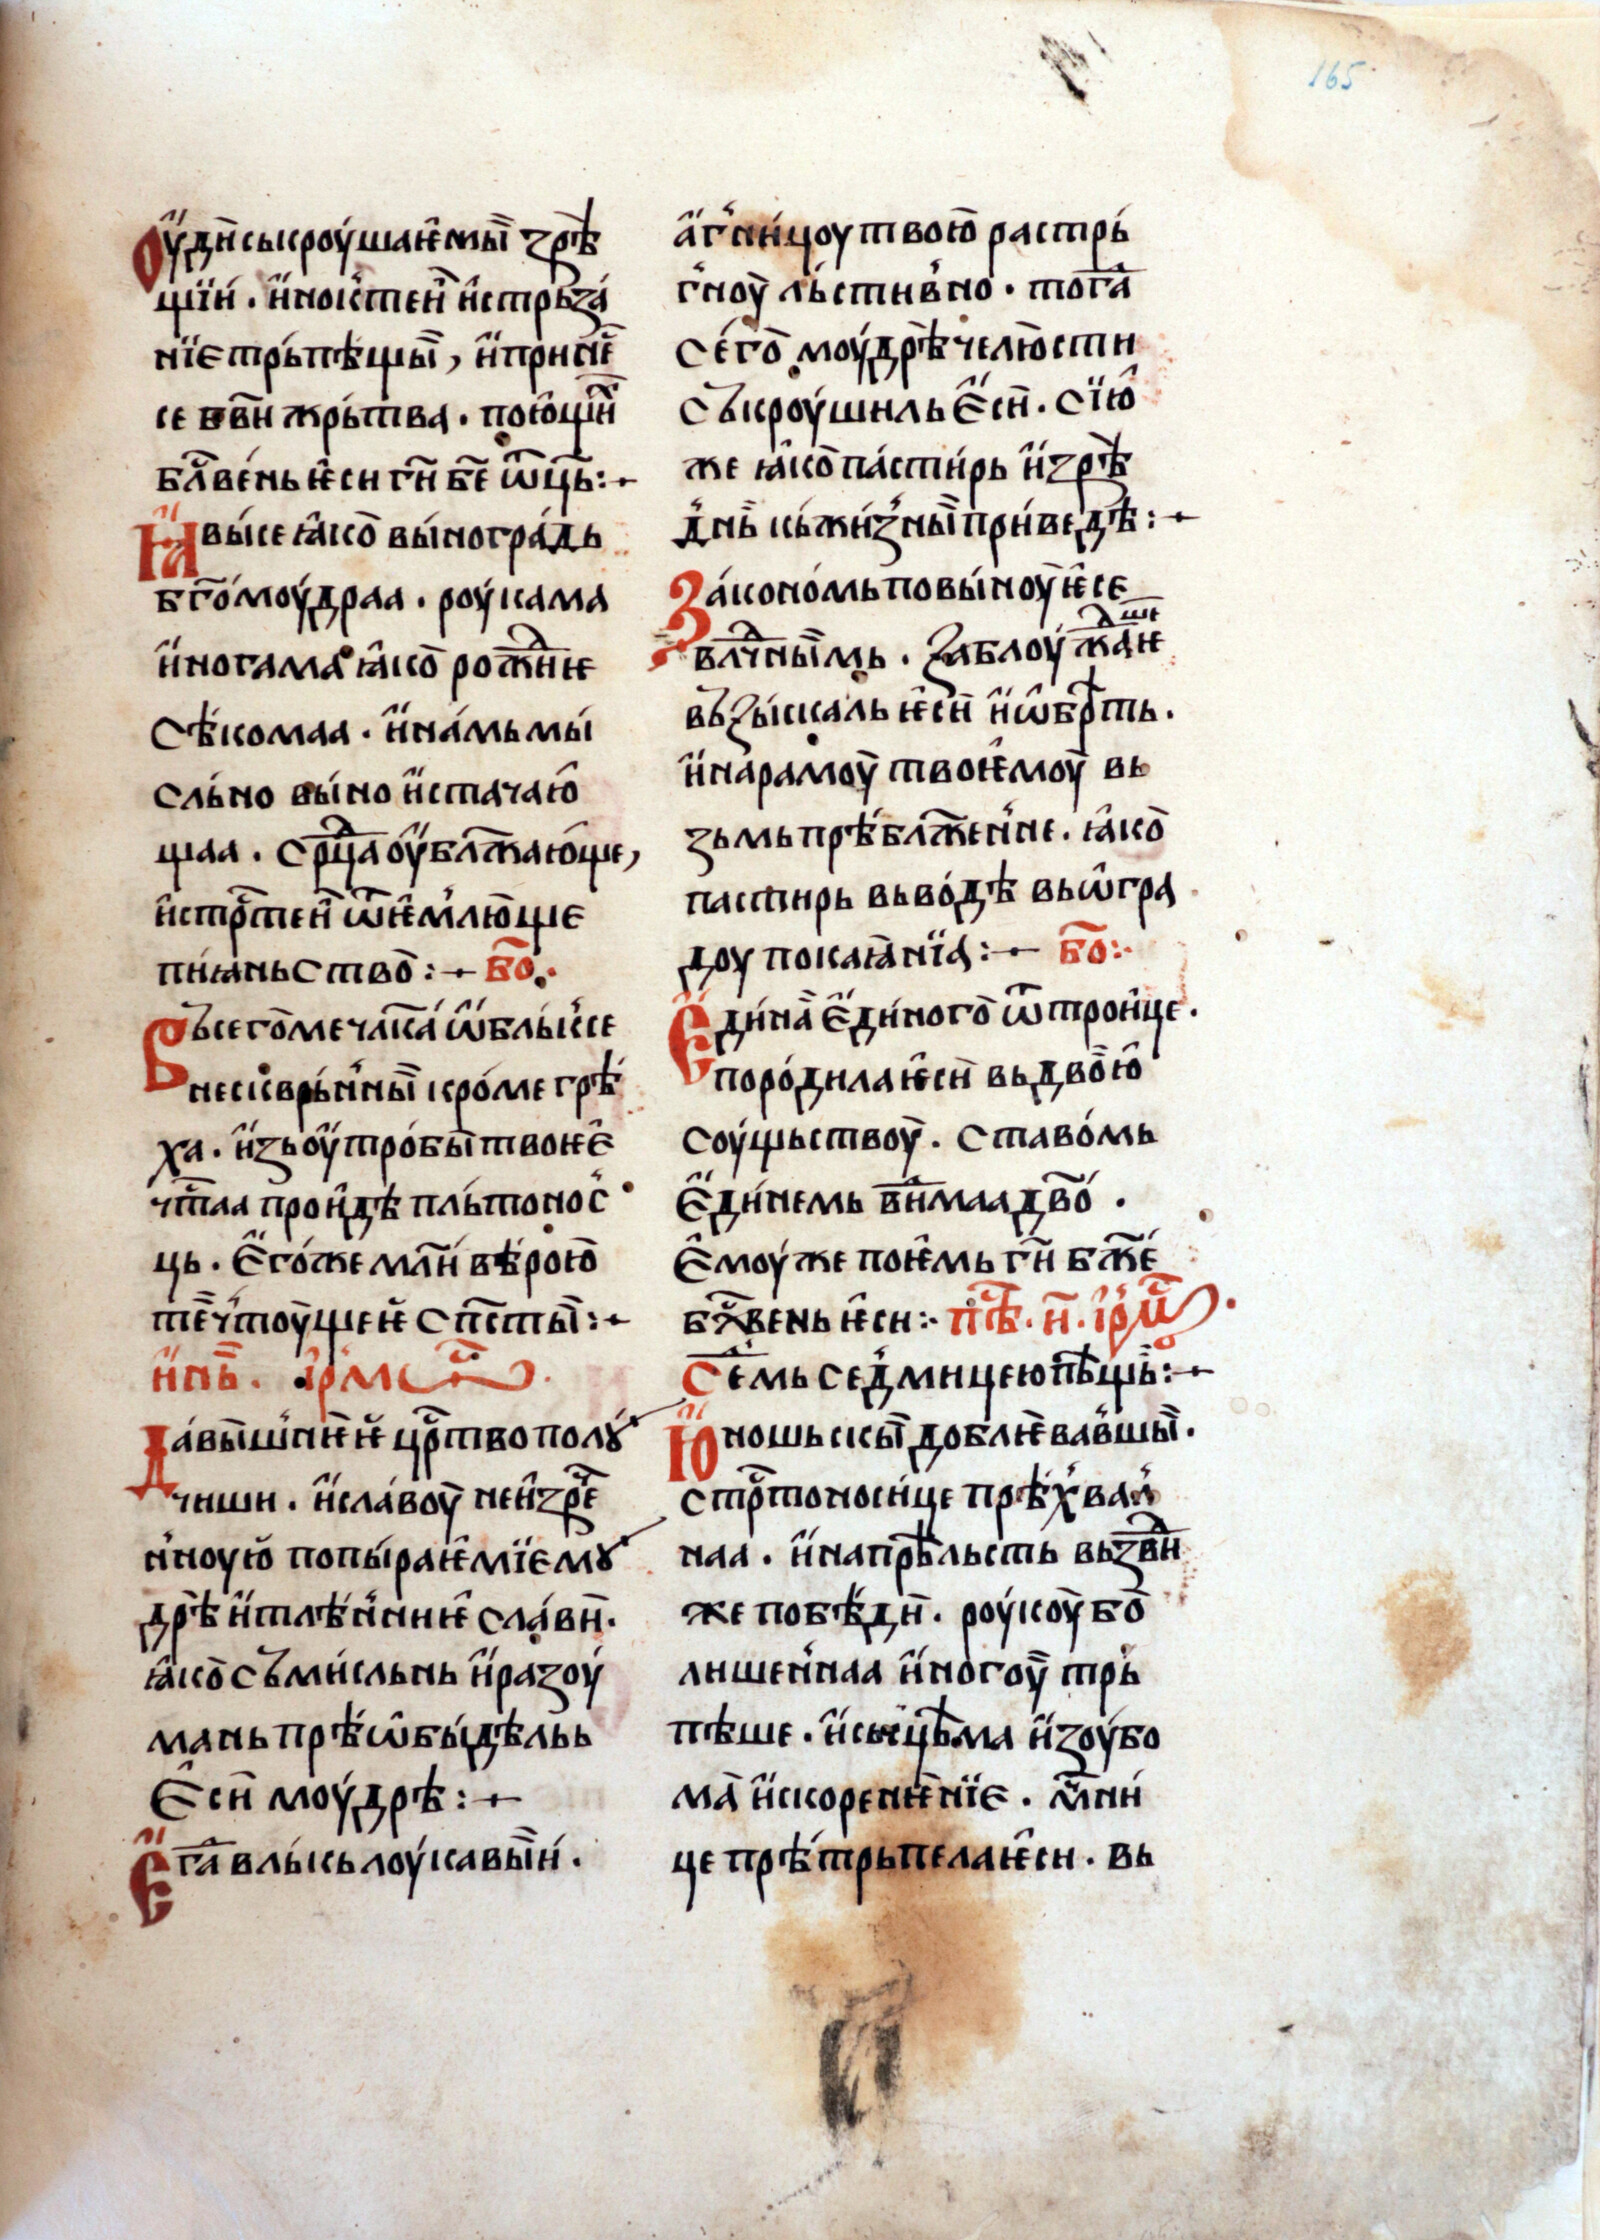 165
Оу҆ди съкроушаѥ҆мы̏ зрѣ
щїи . и҆ ноктеи҆ и҆стрьза
нїе трьпѣщы̏ , и҆ принѐ
се б̅ви жрьтва . пою҆щи
бл̅вень ѥ҆си г҃и б҃е ѿ҆ць :~
Ꙗ҆ви се ꙗ҆ко виноградь
б҃гомоудраа . роукама
и҆ ногама ꙗ҆ко рождиѥ
сѣкомаа . и҆ намь мы
сльно вино и҆стачаю҆
щаа . срдⷣца оу҆блажⷣаю҆ще ,
и҆ стрⷭ҇теи ѿѥ҆млюще
пиꙗньство :~ б҃о .
Въсего ме чл҃ка ѡ҆бльк се
нескврьнны̏ кроме грѣ
ха . и҆зь оу҆тробы твоѥ҆
чⷭ҇таа проиде пльтонос
ць . Е҆гоже мл҃и вѣрою
те чтоущеѥ сп҃сти :~
и҆ пⷭ҇ . і҆рмⷭ҇ .
Да вышнѥѥ црⷭ҇тво полꙋ
чиши . и҆ славоу неи҆зре
нноую попираѥ҆мїе мꙋ
дрѣ и҆ тлѣнниѥ славы .
ꙗ҆ко съмисльнь и҆ разоу
мань прѣѡ҆бидѣль
Е҆си моудрѣ :~
Е҆гдⷣа влькь лоукавыи .
а҆гницоу твою растрь
гноу льстивно . тогдⷣа
сего моудрѣ челюсти
съкроушиль Е҆си . сїю҆
же ꙗ҆ко пастирь и҆зрⷣѣ
дны кь жизны приведѣ :~
Закономь повиноуѥ се
влⷣчнымь . заблоуждⷣшеѥ
въ зыскаль ѥ҆си и҆ ѡ҆брⷣѣть .
и҆ на рамоу твоѥ҆моу вь
зьмь прѣблаженне . ꙗ҆ко
пастирь вьводѣ вь ѡ҆гра
доу покаꙗнїа :~ б҃о :
Е҆дина Е҆диного ѿ трои҆це .
породила ѥ҆си вь двою҆
соущьствоу . ставомь
Е҆динемь в̅нимаа дво .
Е҆моу же поѥ҆мь г҃и б҃же
бл҃вень ѥ҆си :~ пⷭ҇ . и҃ . і҆рмⷭ҇
Седⷣмь седмицею пещь :~
Ю҆ношьскы доблѥ҆вавшы̏ .
стрⷭ҇тоносице прѣхвал
наа . и҆ на прѣльсть вьздвⷣи
же побѣди . роукоу бо
лишеннаа и҆ ногоу трь
пѣше . и҆ сьсцѣма и҆ зоубо
ма и҆скоренѥ҆нїе . мⷱ҇ни
це прѣтрьпела ѥ҆си . вь